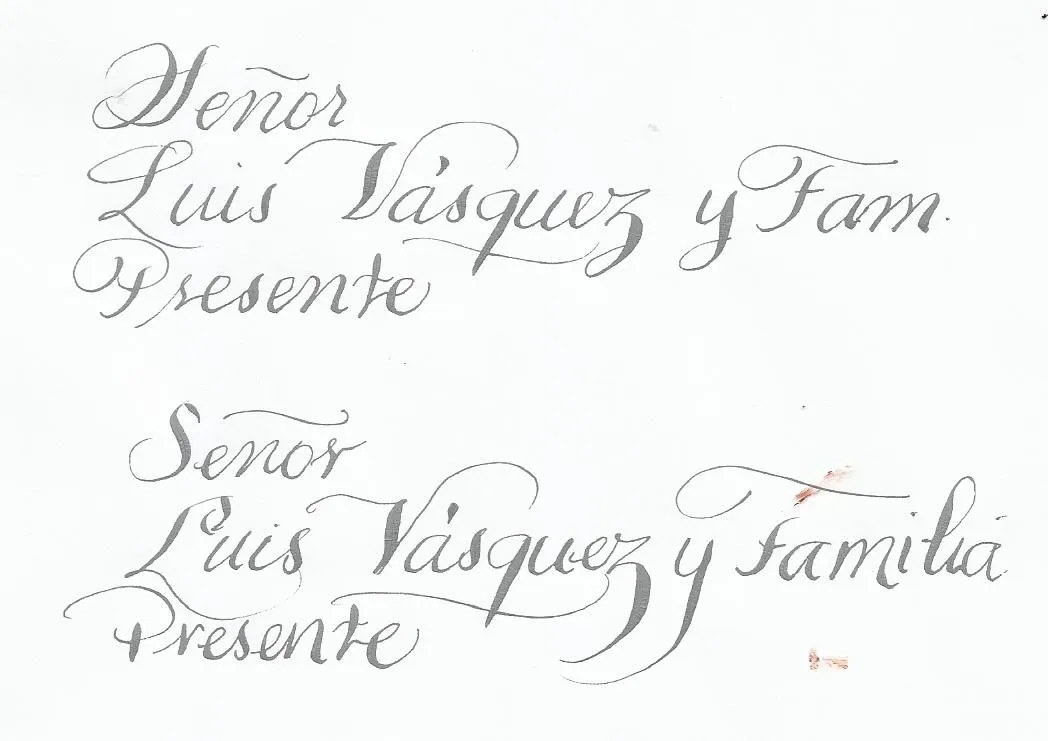 Señor
Luis Vásquez y Fam.
Presente
Señor
Luis Vásquez y Familia
Presente